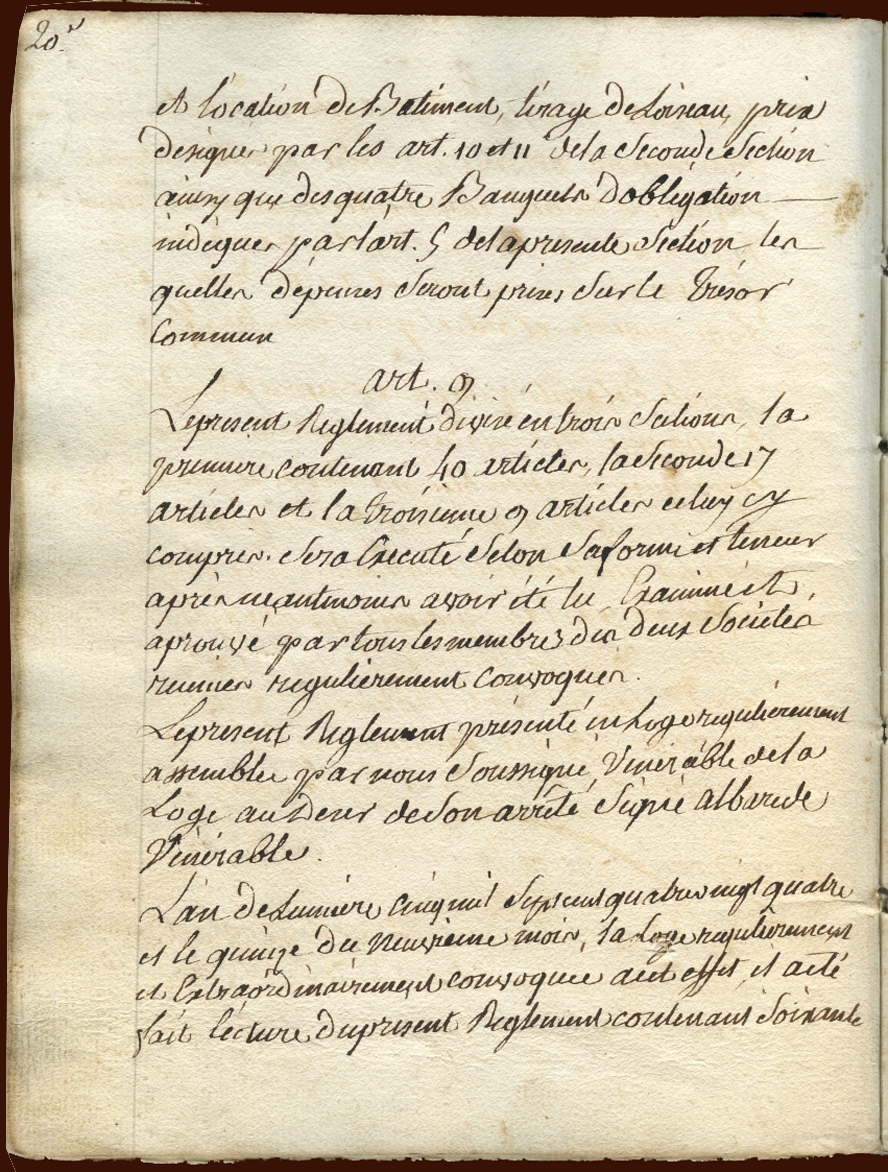 20.e
et location de Batiment, tirage de Loiseau, prix
designés par les art. 10 et 11 de la Seconde Section
ainsy que des quatre Banquets D'obligation
indiqués par l'art. 5 de la presente Section, les
quelles dépenses Seront prises Sur le Trésor
Commun
art. 9
Le present Reglement divisé en trois Sections, la
premiere contenant 40 articles, la Seconde 17
articles et la troisieme 9 articles celuy cy
compris. Sera Executé Selon Sa forme et teneur
après neantmoins avoir été lu, Examiné et
aprouvé par tous les membres des deux Societés
reunies regulierement Convoqués.
Le present Reglement présenté en Loge regulierement
assemblée par nous Soussigné, Vénérable de la
Loge au Desir de Son arrêté Signé albarede
Vénérable.
L'an de Lumière Cinq mil Sept cent quatre vingt quatre
et le quinze du Neuvieme mois, la Loge regulierement
et Extraordinairement convoquée a cet effet, il a été
fait lecture du present Reglement contenant Soixante